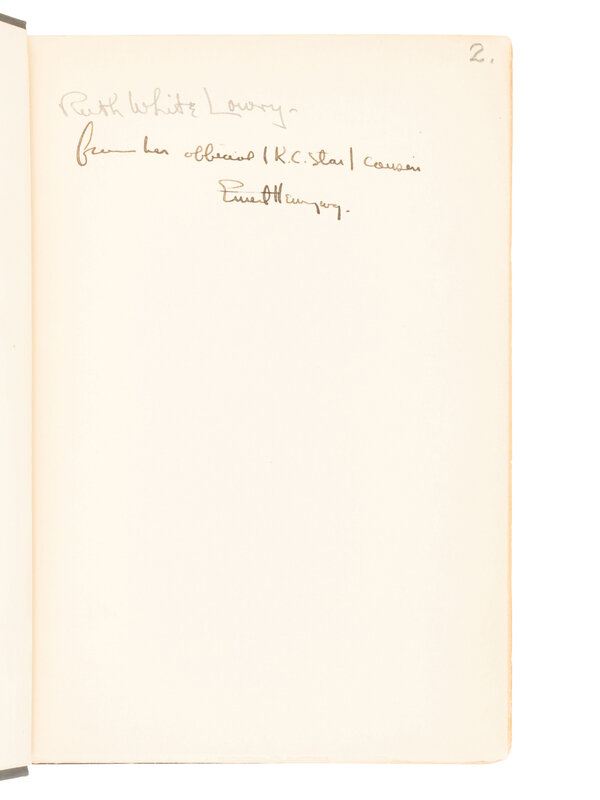 2.
Ruth White Lowry-
from her official (K.C. Star) cousin
Ernest Hemingway.